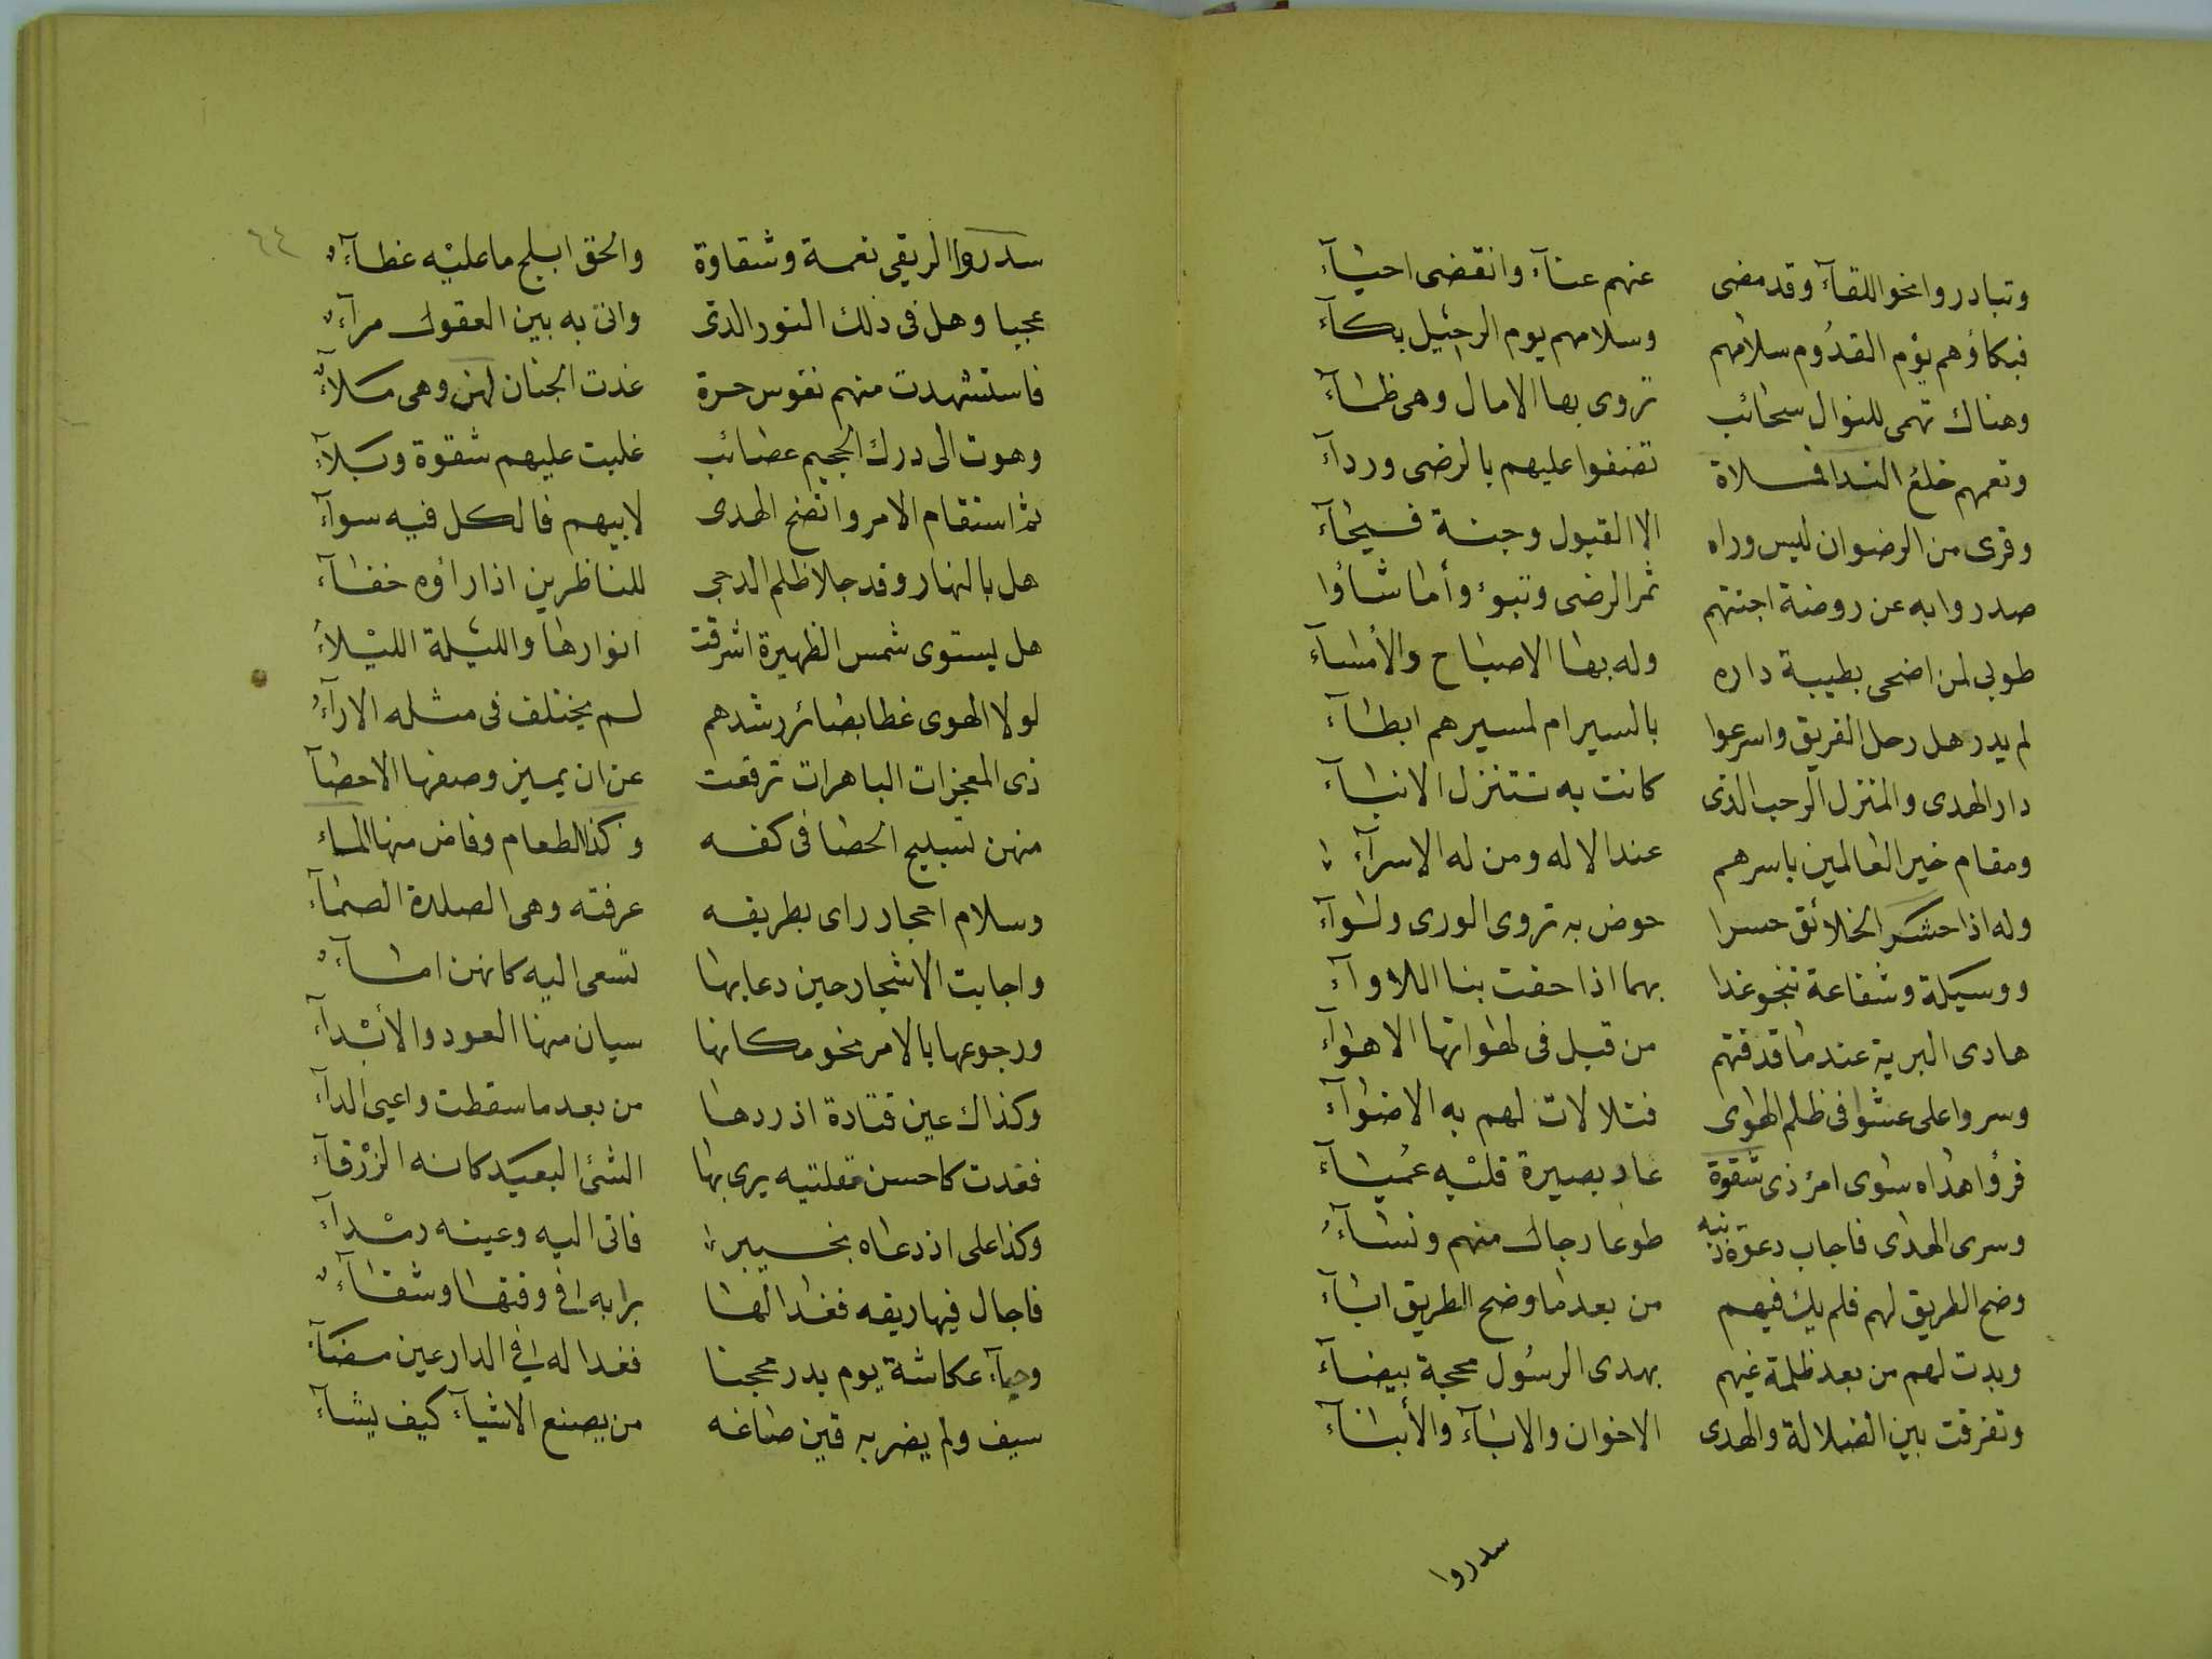 وتبادروا نحو اللقآء وقد مضى عنهم عنآء وانقضى احيآء
فبكاؤهم يؤم القدُوم سلامهم وسلامهم يوم الرحيل بكآء
وهناك تهمى للنوال سحائب تروى بها الامال وهى ظمآء
وتعمهم خلع الندا فسلاة تضفوا عليهم بالرضى وردآء
وقرى من الرضوان ليس وراه الا القبول وجنة فسيحآء
صدروا به عن روضة اجنتهم ثمر الرضى وتبوء وأما شاؤا
طوبى لمن اضحى بطيبة داره وله بها الاصباح والأمسآء
لم يدر هل رحل الفريق واسرعوا بالسير ام لمسيرهم ابطآء
دار الهدى والمنزل الرحب الذى كانت به تتنزل الانبآء
ومقام خير العالمين باسرهم عند الاله ومن له الاسرآء
وله اذا حشر الخلائق حسرا حوض به تروى الورى ولوآء
ووسيلة وشفاعة ننجو غدا بهما اذا حفت بنا اللاوآء
هادى البرية عندما قدفتهم من قبل فى لهواتها الاهوآء
وسروا على عشوا فى ظلم الهوى فتلالات لهم به الاضوآء
فرؤا هداه سوى امرء ذى شقوة عاد بصيرة قلبه عميآء
وسرى الهدى فاجاب دعوة ربه طوعا رجال منهم ونسآء
وضح الطريق لهم فلم يك فيهم من بعد ما وضح الطريق ابآء
وبدت لهم من بعد ظلمة غيهم بهدى الرسُول محجة بيضآء
وتفرقت بين الضلالة والهدى الاخوان والابآء والأبنآء
سدروا
٦٤
سدروا الريقى نعمة وشقاوة والحق ابلج ما عليه غطآء
عجبا وهل فى ذلك النور الذى واتى به بين العقول مرآء
فاستشهدت منهم نفوس حرة غدت الجنان لهن وهى ملآء
وهوت الى درك الجحيم عصائب غلبت عليهم شقوة وبلآء
ثم استقام الامر واتضح الهدى لابيهم فالكل فيه سوآء
هل بالنهار وقد جلا ظلم الدجى للناظرين اذا رأوه خفآء
هل يستوى شمس الظهيرة اشرقت انوارها والليلة الليلآء
لولا الهوى غطا بصائر رشدهم لم يختلف فى مثله الارآءُ
ذى المعجزات الباهرات ترفعت عن ان يمين وصفها الاحصآ
منهن تسبيح الحصا فى كفه وكذا الطعام وفاض منها الماء
وسلام احجار راى بطريقه عرفته وهى الصلدة الصمآء
واجابت الاشجار حين دعا بها تسعى اليه كانهن امآء
ورجوعها بالامر نحو مكانها سيان منها العود والأبدآء
وكذاك عين قتادة اذ ردها من بعد ما سقطت واعيى الدآء
فغدت كاحسن مقلتيه يرى بها الشئ البعيد كانه الزرقآء
وكذا على اذ دعاه بخيبر فاتى اليه وعينه رمدآء
فاجال فيها ريقه فغدا لها برا به فى وقتها وشفآء
وحبآء عكاشة يوم بدر محجنا فغدا له فى الدارعين مضآء
سيف ولم يضر به قين صاغه من يصنع الاشيآء كيف يشآء